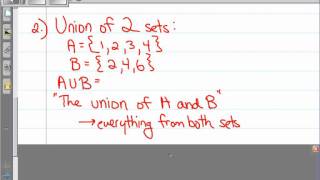 2.) Union of 2 sets:
A = {1,2,3,4}
B = {2,4,6}
A∪B =
"The union of A and B"
→ everything from both sets